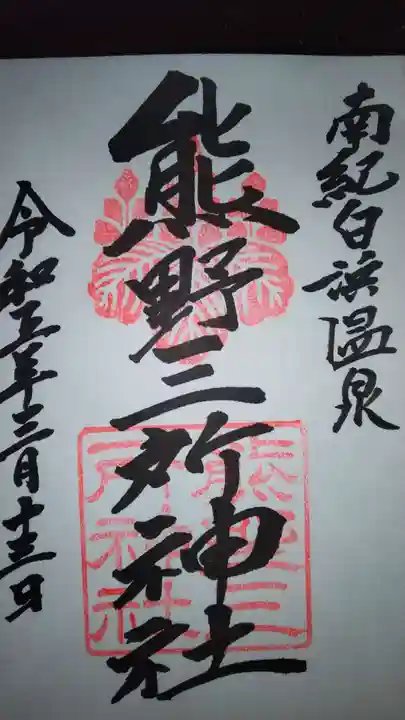 南紀白浜温泉
熊野三所神社
熊野三所神社
令和五年三月十三日